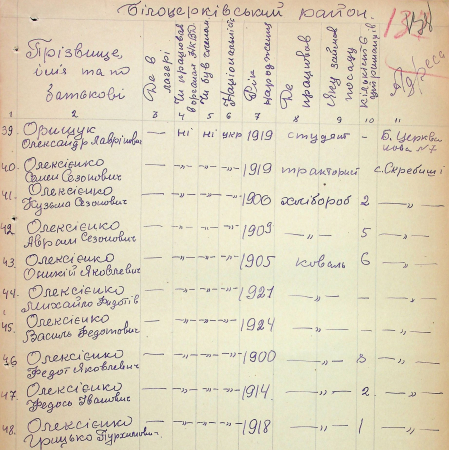 Білоцерківський район.
134
Прізвище, імя та по батькові
Де в лагері
Чи працював в органах НКВД
Чи був членом
Національність
Рік народження
Де працював
Яку займав посаду
Кількість
Адреса
1 2 3 4 5 6 7 8 9 10 11
39. Орищук — ні ні укр 1919 студент - Б. Церква
Олександр Лаврінович нова N7
40. Олексієнко — —"— —"— —"— 1919 тракторист с. Скребиші
Семен Созонович
41. Олексієнко — —"— —"— —"— 1906 хлібороб 2 —"—
Кузьма Созонович
42. Олексієнко — —"— —"— —"— 1909 —"— 5 —"—
Аврам Созонович
43. Олексієнко — —"— —"— —"— 1905 коваль 6 —"—
Яковлевич
44. Олексієнко — —"— —"— —"— 1921 —"— - —"—
Михайло
45. Олексієнко — —"— —"— —"— 1924 —"— - —"—
Василь Федотович
46. Олексієнко — —"— —"— —"— 1900 —"— 3 —"—
Федот Яковлевич
47. Олексієнко — —"— —"— —"— 1914 —"— 2 —"—
Федось Іванович
48. Олексієнко — —"— —"— —"— 1918 —"— 1 —"—
Грицько